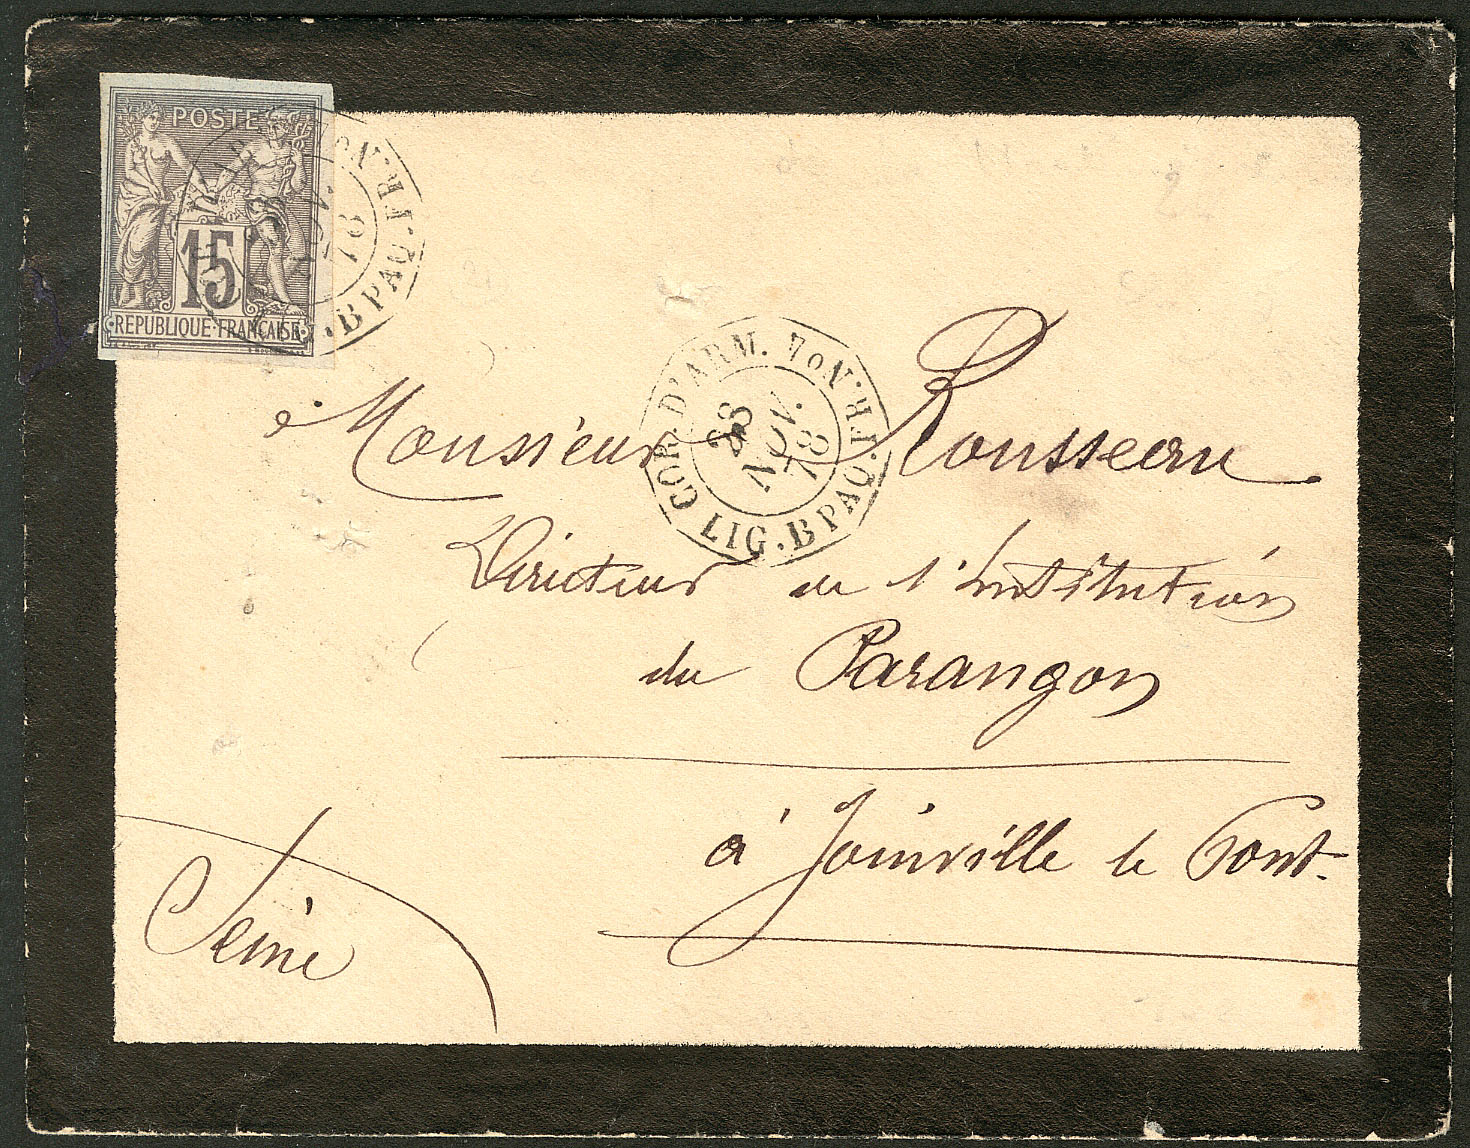 POSTE
15
REPUBLIQUE FRANÇAISE
LIG.B PAQ.FR.No
NOV.
78
COR.D'ARM. LIG.B PAQ.FR.No
28
NOV.
78
Monsieur Rousseau
Directeur de l'Institution
du Parangon
à Joinville le Pont.
Seine